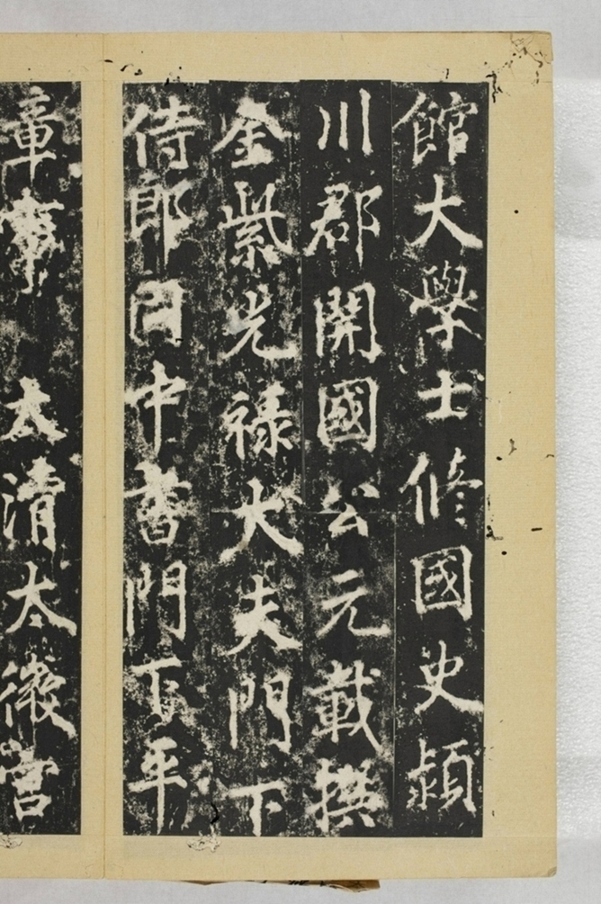 館大學士修國史潁
川郡開國公元載撰
金紫光祿大夫門下
侍郎同中書門下平
章事太清太微宮